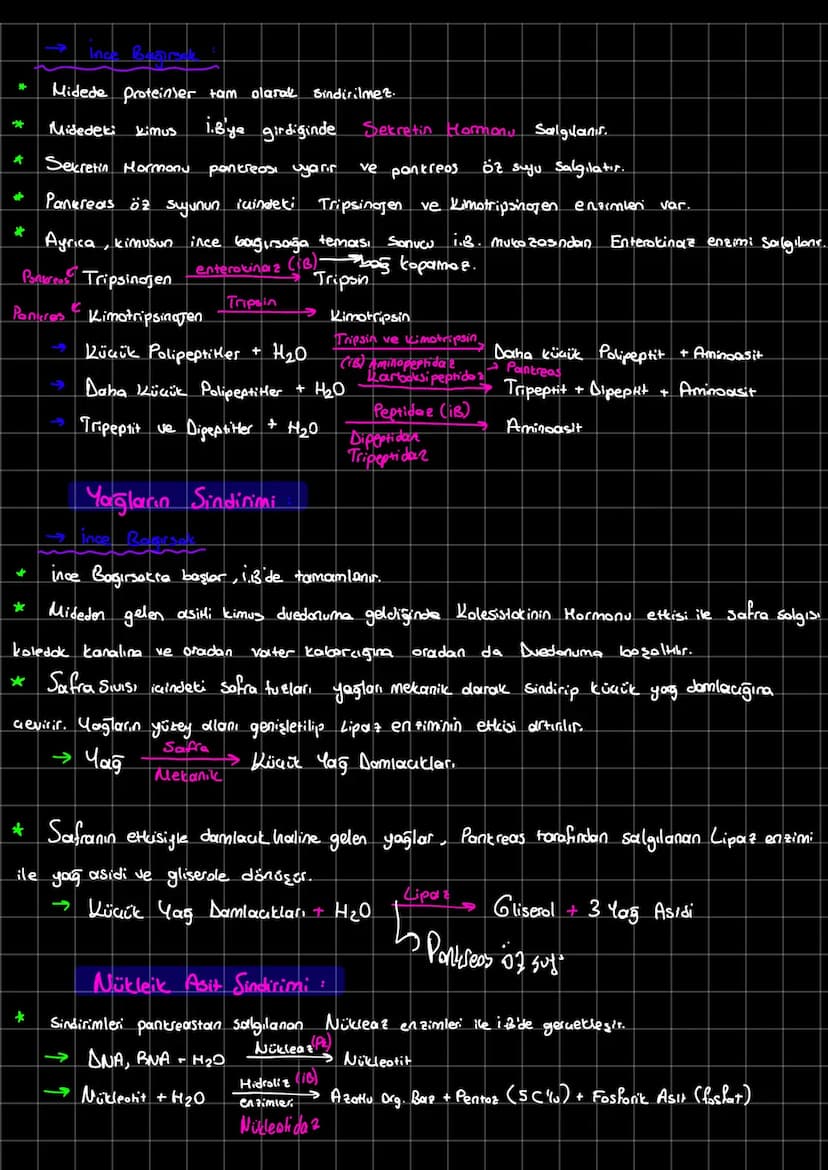 → İnce Bağırsak :
* Midede proteinler tam olarak sindirilmez.
* Midedeki kimus i.B'ya girdiğinde Sekretin Hormonu Salgılanır.
* Sekretin Hormonu pankreası uyarır ve pankreas öz suyu Salgılatır.
* Pankreas öz suyunun içindeki Tripsinojen ve Kimotripsinojen enzimleri var.
* Ayrıca, kimusun ince bağırsağa teması sonucu i.B. mukozasından Enterokinaz enzimi salgılanır.
Pankreas Tripsinojen enterokinaz (iB) → Tripsin → bağ koparmaz.
Pankreas Kimotripsinojen Tripsin → Kimotripsin
→ Küçük Polipeptitler + H2O Tripsin ve kimotripsin → Daha küçük Polipeptit + Aminoasit
→ Daha Küçük Polipeptitler + H2O (iB) Aminopeptidaz Karboksipeptidaz → Pankreas → Tripeptit + Dipeptit + Aminoasit
→ Tripeptit ve Dipeptitler + H2O Peptidaz (iB) → Aminoasit
Dipeptidaz
Tripeptidaz
Yağların Sindirimi :
→ ince Bağırsak
* ince Bağırsakta başlar, i.B'de tamamlanır.
* Mideden gelen asitli kimus duedonuma geldiğinde Kolesistokinin Hormonu etkisi ile safra salgısı
koledok kanalına ve oradan vater kabarcığına oradan da Duedonuma boşaltılır.
* Safra Sıvısı içindeki safra tuzları yağları mekanik olarak sindirip küçük yağ damlacığına
çevirir. Yağların yüzey alanı genişletilip Lipaz enziminin etkisi artırılır.
→ Yağ Safra Mekanik → Küçük Yağ Damlacıkları.
* Safranın etkisiyle damlacık haline gelen yağlar, Pankreas tarafından salgılanan Lipaz enzimi
ile yağ asidi ve gliserole dönüşür.
→ Küçük Yağ Damlacıkları + H2O Lipaz → Gliserol + 3 Yağ Asidi
Pankreas öz suyu
Nükleik Asit Sindirimi :
* Sindirimleri pankreastan salgılanan Nükleaz enzimleri ile i.B'de gerçekleşir.
→ DNA, RNA + H2O Nükleaz (Pz) → Nükleotit
→ Nükleotit + H2O Hidroliz (iB) enzimleri → Azotlu Org. Baz + Pentoz (5C'lu) + Fosforik Asit (fosfat)
Nükleotidaz